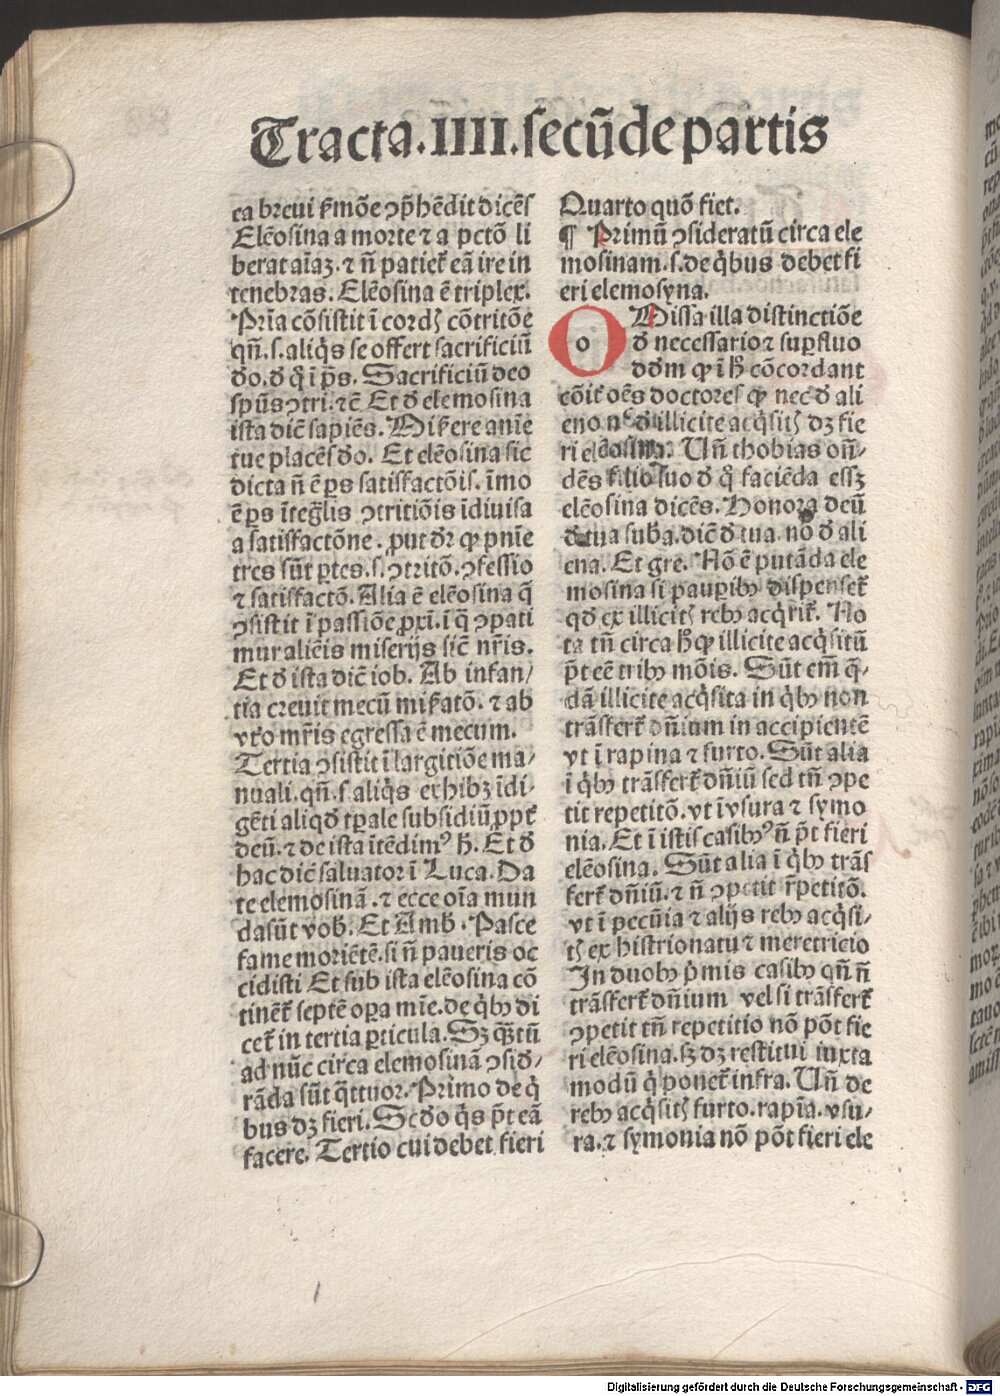 Tracta.IIII.secūde partis
ea breui ẜmōe ↄp̄hēdit dicēs
Elēosina a morte ⁊ a pctō li
berat aīaꝫ. ⁊ n̄ patiet᷑ eā ire in
tenebras. Elēosina ē triplex.
Prīa cōsistit ī cordꝭ cōtritōe
qn̄.s. aliq̇s se offert sacrificiū
ꝺo. ꝺ q̊ ī ps̄. Sacrificiū deo
spūs ↄtri. ⁊c̄ Et ꝺ elemosina
ista dic̄ sapiēs. Miẜere anīe
tue placēs ꝺo. Et elēosina sic
dicta n̄ ē ꝑs satisfactōis. īmo
ē ꝑs īteg̊lis ↄtritiōis īdiuisa
a satisfactōne. ꝓut ꝺr̄ ꝙ pnīe
tres sūt ꝑtes.s. ↄtritō. ↄfessio
⁊ satisfactō. Alia ē elēosina q̄
ↄsistit ī passiōe ꝓxī. ī q̄ ↄpati
mur aliēis miserijs sic̄ nr̄is.
Et ꝺ ista dic̄ iob. Ab infan/
tia creuit mecū miẜatō. ⁊ ab
vt᷑o mr̄is egressa ē mecum.
Tertia ↄsistit ī largitiōe ma/
nuali. qn̄.s. aliq̇s exhibꝫ īdi/
gēti aliqꝺ tꝑale subsidiū ꝓpt᷑
deū. ⁊ de ista ītēdimꝰ h̄. Et ꝺ
hac dic̄ saluator ī Luca. Da
te elemosinā. ⁊ ecce oīa mun
da sūt vob̄. Et Amb̄. Pasce
fame moriētē. si n̄ paueris oc
cidisti Et sub ista elēosina cō
tinēt᷑ septē oꝑa mīe. de q̇bꝫ di
cet᷑ in tertia ꝑticula. Sꝫ qꝫtū
ad nūc circa elemosinā ↄsiꝺ/
rāda sūt q̄ttuor. Primo de q̇
bus dꝫ fieri. Scꝺo q̇s p̄t eā
facere. Tertio cui debet fieri
Quarto quō fiet.
¶ Primū ↄsideratū circa ele
mosinam.s. de q̇bus debet fi
eri elemosyna.
o Missa illa distinctiōe
ꝺ necessario ⁊ suꝑfluo
dꝺm ꝙ ī h̄ cōcordant
cōit᷑ oēs doctores ꝙ nec ꝺ ali
eno nᶜ ꝺ illicite acq̇sitꝭ dꝫ fie
ri elēosina. Un̄ thobias on̄/
dēs filio suo ꝺ q̊ faciēda essꝫ
elēosina dicēs. Honora deū
ꝺ tua suba. dic̄ ꝺ tua. nō ꝺ ali
ena. Et gre. Nō ē putāda ele
mosina si pauꝑibꝫ dispenset᷑
qꝺ ex illicitꝭ rebꝫ acq̇rit᷑. No
ta tn̄ circa h̄ ꝙ illicite acq̇sitū
p̄t eē tribꝫ mōis. Sūt em̄ q̄/
dā illicite acq̇sita in q̇bꝫ non
trāsfert᷑ dn̄ium in accipientē
vt ī rapina ⁊ furto. Sūt alia
ī q̇bꝫ trāsfert᷑ dn̄iū sed tn̄ ↄpe
tit repetitō. vt ī vsura ⁊ symo
nia. Et ī istis casibꝰ n̄ p̄t fieri
elēosina. Sūt alia ī q̇bꝫ trās
fert᷑ dn̄iū. ⁊ n̄ ↄpetit r̄petitō.
vt ī pecūia ⁊ alijs rebꝫ acq̇si/
tꝭ ex histrionatu ⁊ meretricio
In duobꝫ ṗmis casibꝫ qn̄ n̄
trāsfert᷑ dn̄ium vel si trāsfert᷑
ↄpetit tn̄ repetitio nō pōt fie
ri elēosina. sꝫ dꝫ restitui iuxta
modū q̇ ponet᷑ infra. Un̄ de
rebꝫ acq̇sitꝭ furto. rapīa. vsu/
ra. ⁊ symonia nō pōt fieri ele
Digitalisierung gefördert durch die Deutsche Forschungsgemeinschaft - DFG